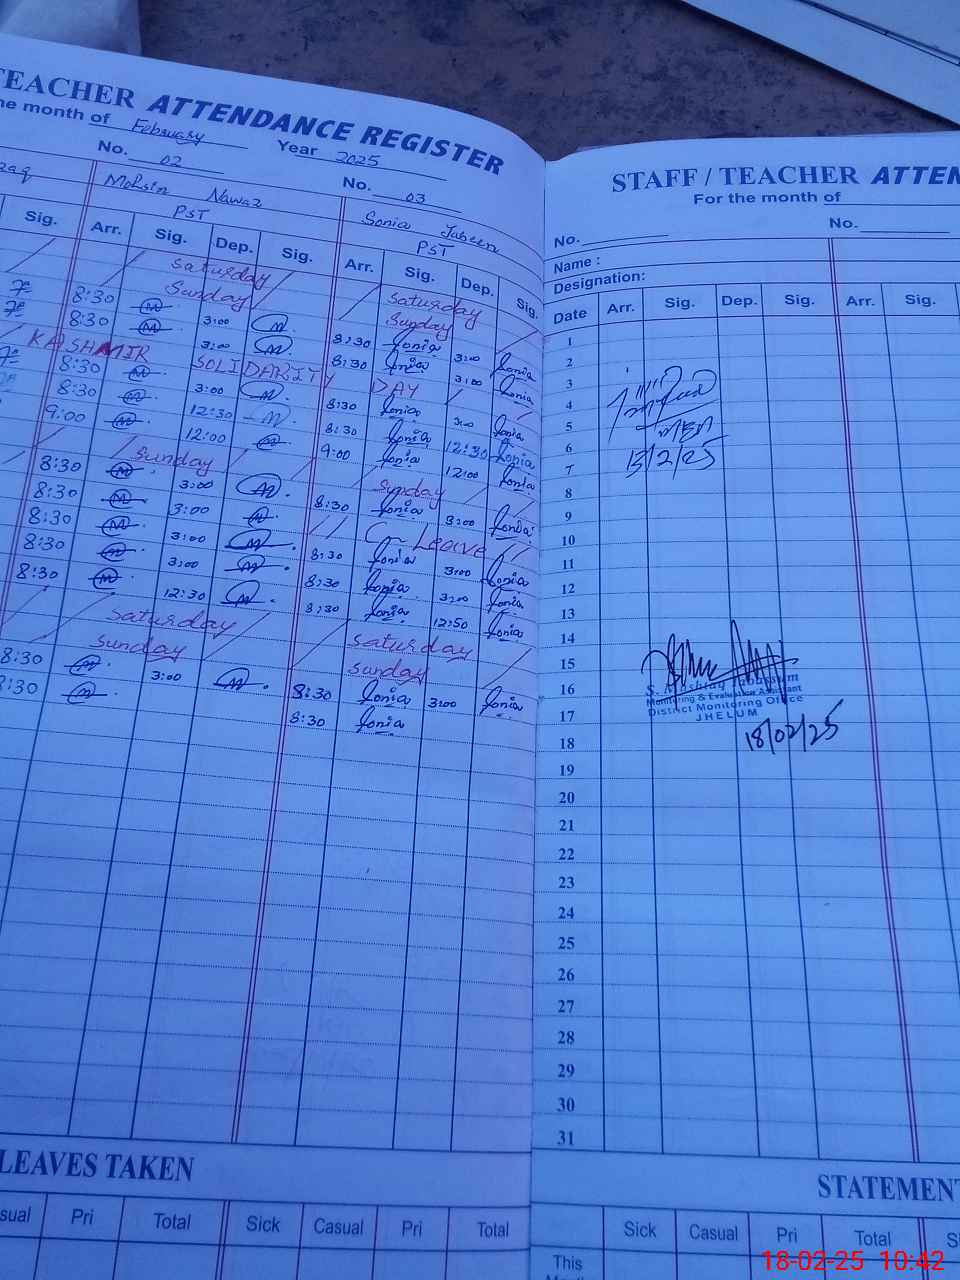 TEACHER ATTENDANCE REGISTER
he month of February Year 2025
No. 02 No. 03
zaq Mohsin Nawaz Sonia Jabeen
PST PST
Sig. Arr. Sig. Dep. Sig. Arr. Sig. Dep. Sig.
Saturday Saturday
Sunday Sunday
8:30 M 3:00 M 8:30 Sonia 3:00 Sonia
8:30 M 3:00 M 8:30 Sonia 3:00 Sonia
KASHMIR SOLIDARITY DAY
8:30 M 3:00 M 8:30 Sonia 3:00 Sonia
8:30 M 12:30 M 8:30 Sonia 12:30 Sonia
9:00 M 12:00 M 9:00 Sonia 12:00 Sonia
Sunday Sunday
8:30 M 3:00 M 8:30 Sonia 3:00 Sonia
8:30 M 3:00 M C- Leave
8:30 M 3:00 M 8:30 Sonia 3:00 Sonia
8:30 M 3:00 M 8:30 Sonia 3:00 Sonia
8:30 M 12:30 M 8:30 Sonia 12:50 Sonia
Saturday Saturday
Sunday Sunday
8:30 M 3:00 M 8:30 Sonia 3:00 Sonia
8:30 M 8:30 Sonia
LEAVES TAKEN
sual Pri Total Sick Casual Pri Total
STAFF / TEACHER ATTEN
For the month of
No. No.
Name :
Designation:
Date Arr. Sig. Dep. Sig. Arr. Sig.
1
2
3
4
5
6
7
8
9
10
11
12
13
14
15
16
17
18
19
20
21
22
23
24
25
26
27
28
29
30
31
MEA
13/2/25
Monitoring & Evaluation Assistant
District Monitoring Office
JHELUM
18/02/25
STATEMENT
Sick Casual Pri Total S
This
18-02-25 10:42